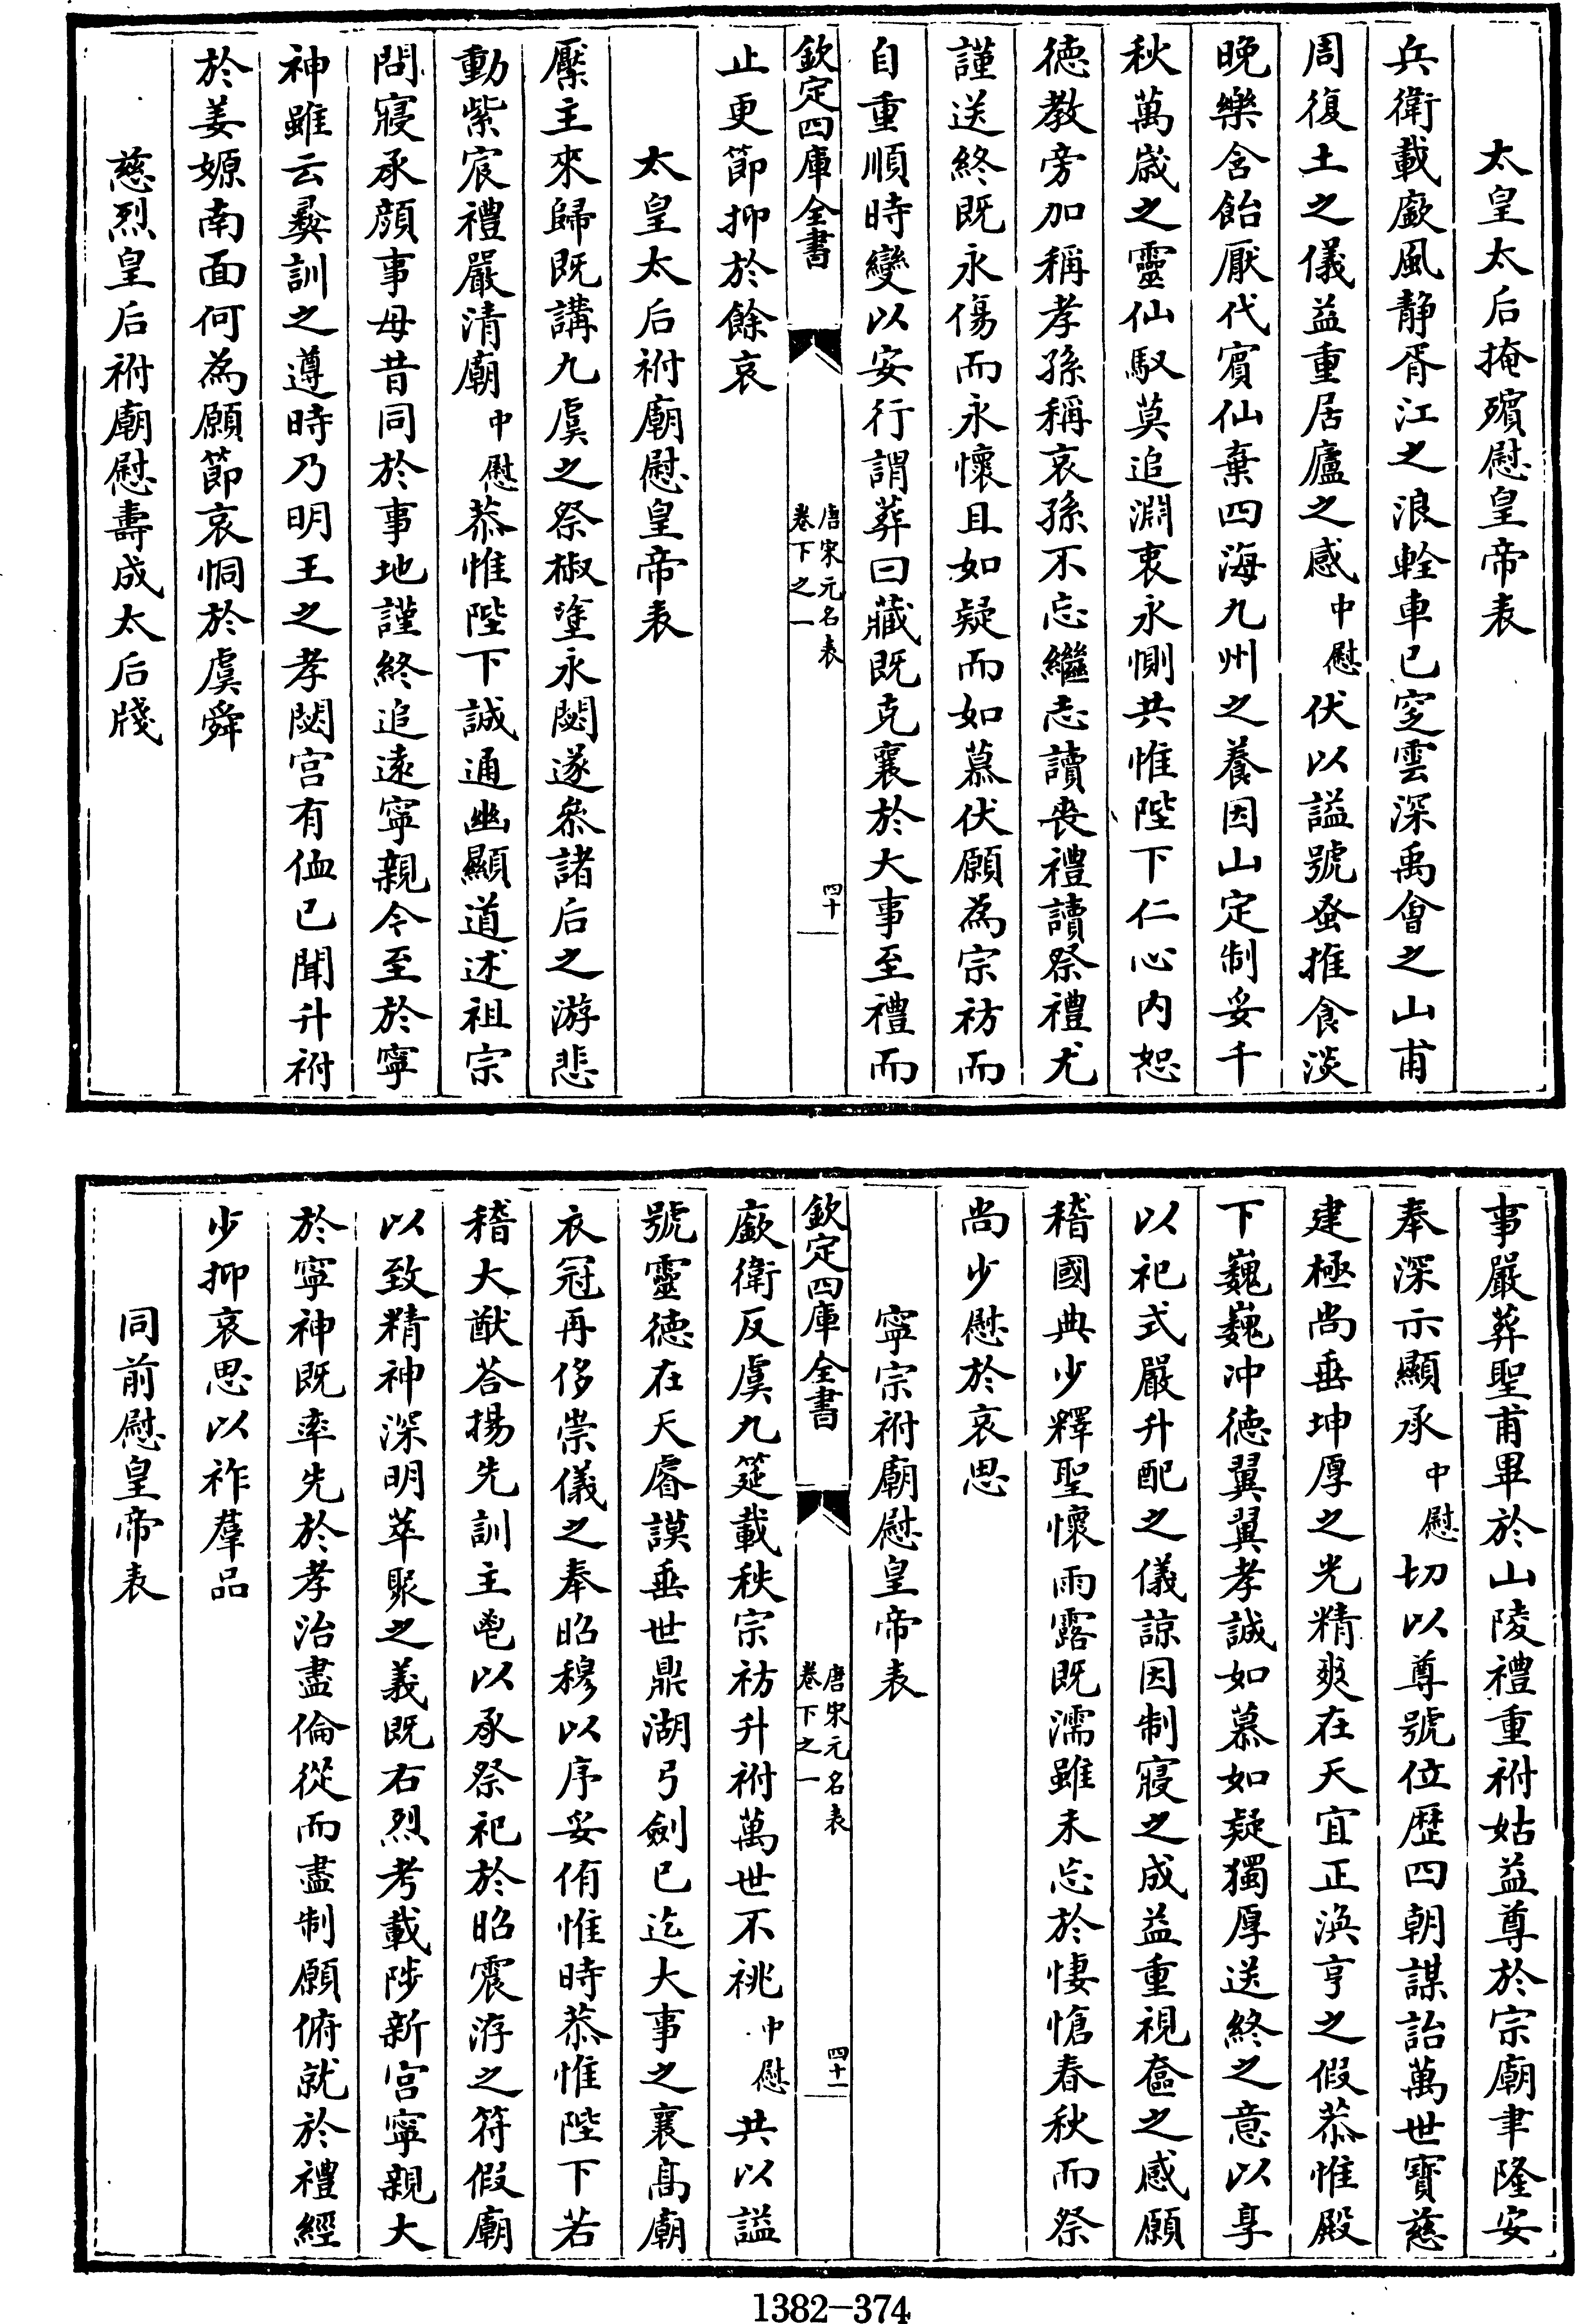 太皇太后掩殯慰皇帝表
兵衛載廞風静胥江之浪輇車已窆雲深禹會之山甫
周復土之儀益重居廬之感中慰伏以謚號蚤推食淡
晚樂含飴厭代賓仙棄四海九州之養因山定制妥千
秋萬歳之靈仙馭莫追淵衷永惻共惟陛下仁心内恕
徳教旁加稱孝孫稱哀孫不忘繼志讀喪禮讀祭禮尤
謹送終既永傷而永懷且如疑而如慕伏願為宗祊而
自重順時變以安行謂葬曰藏既克襄於大事至禮而
欽定四庫全書
唐宋元名表
卷下之一
四十
止更節抑於餘哀
太皇太后祔廟慰皇帝表
厴主來歸既講九虞之祭椒塗永閟遂叅諸后之游悲
動紫宸禮嚴清廟中慰恭惟陛下誠通幽顯道述祖宗
問寢承顔事母昔同於事地謹終追逺寧親今至於寧
神雖云彜訓之遵時乃明王之孝閟宫有侐已聞升祔
於姜嫄南面何為願節哀恫於虞舜
慈烈皇后祔廟慰壽成太后牋
事嚴葬聖甫畢於山陵禮重祔姑益尊於宗廟聿隆安
奉深示顯承中慰切以尊號位歴四朝謀詒萬世寳慈
建極尚垂坤厚之光精爽在天宜正渙亨之假恭惟殿
下巍巍沖徳翼翼孝誠如慕如疑獨厚送終之意以享
以祀式嚴升配之儀諒因制寢之成益重視奩之感願
稽國典少釋聖懷雨露既濡雖未忘於悽愴春秋而祭
尚少慰於哀思
寧宗祔廟慰皇帝表
欽定四庫全書
唐宋元名表
卷下之一
四十一
廞衛反虞九筵載秩宗祊升祔萬世不祧中慰共以謚
號靈徳在天睿謨垂世鼎湖弓劍已迄大事之襄髙廟
衣冠再侈崇儀之奉昭穆以序妥侑惟時恭惟陛下若
稽大猷荅揚先訓主鬯以承祭祀於昭震洊之符假廟
以致精神深明萃聚之義既右烈考載陟新宫寧親大
於寧神既率先於孝治盡倫從而盡制願俯就於禮經
少抑哀思以祚羣品
同前慰皇帝表
1382-374